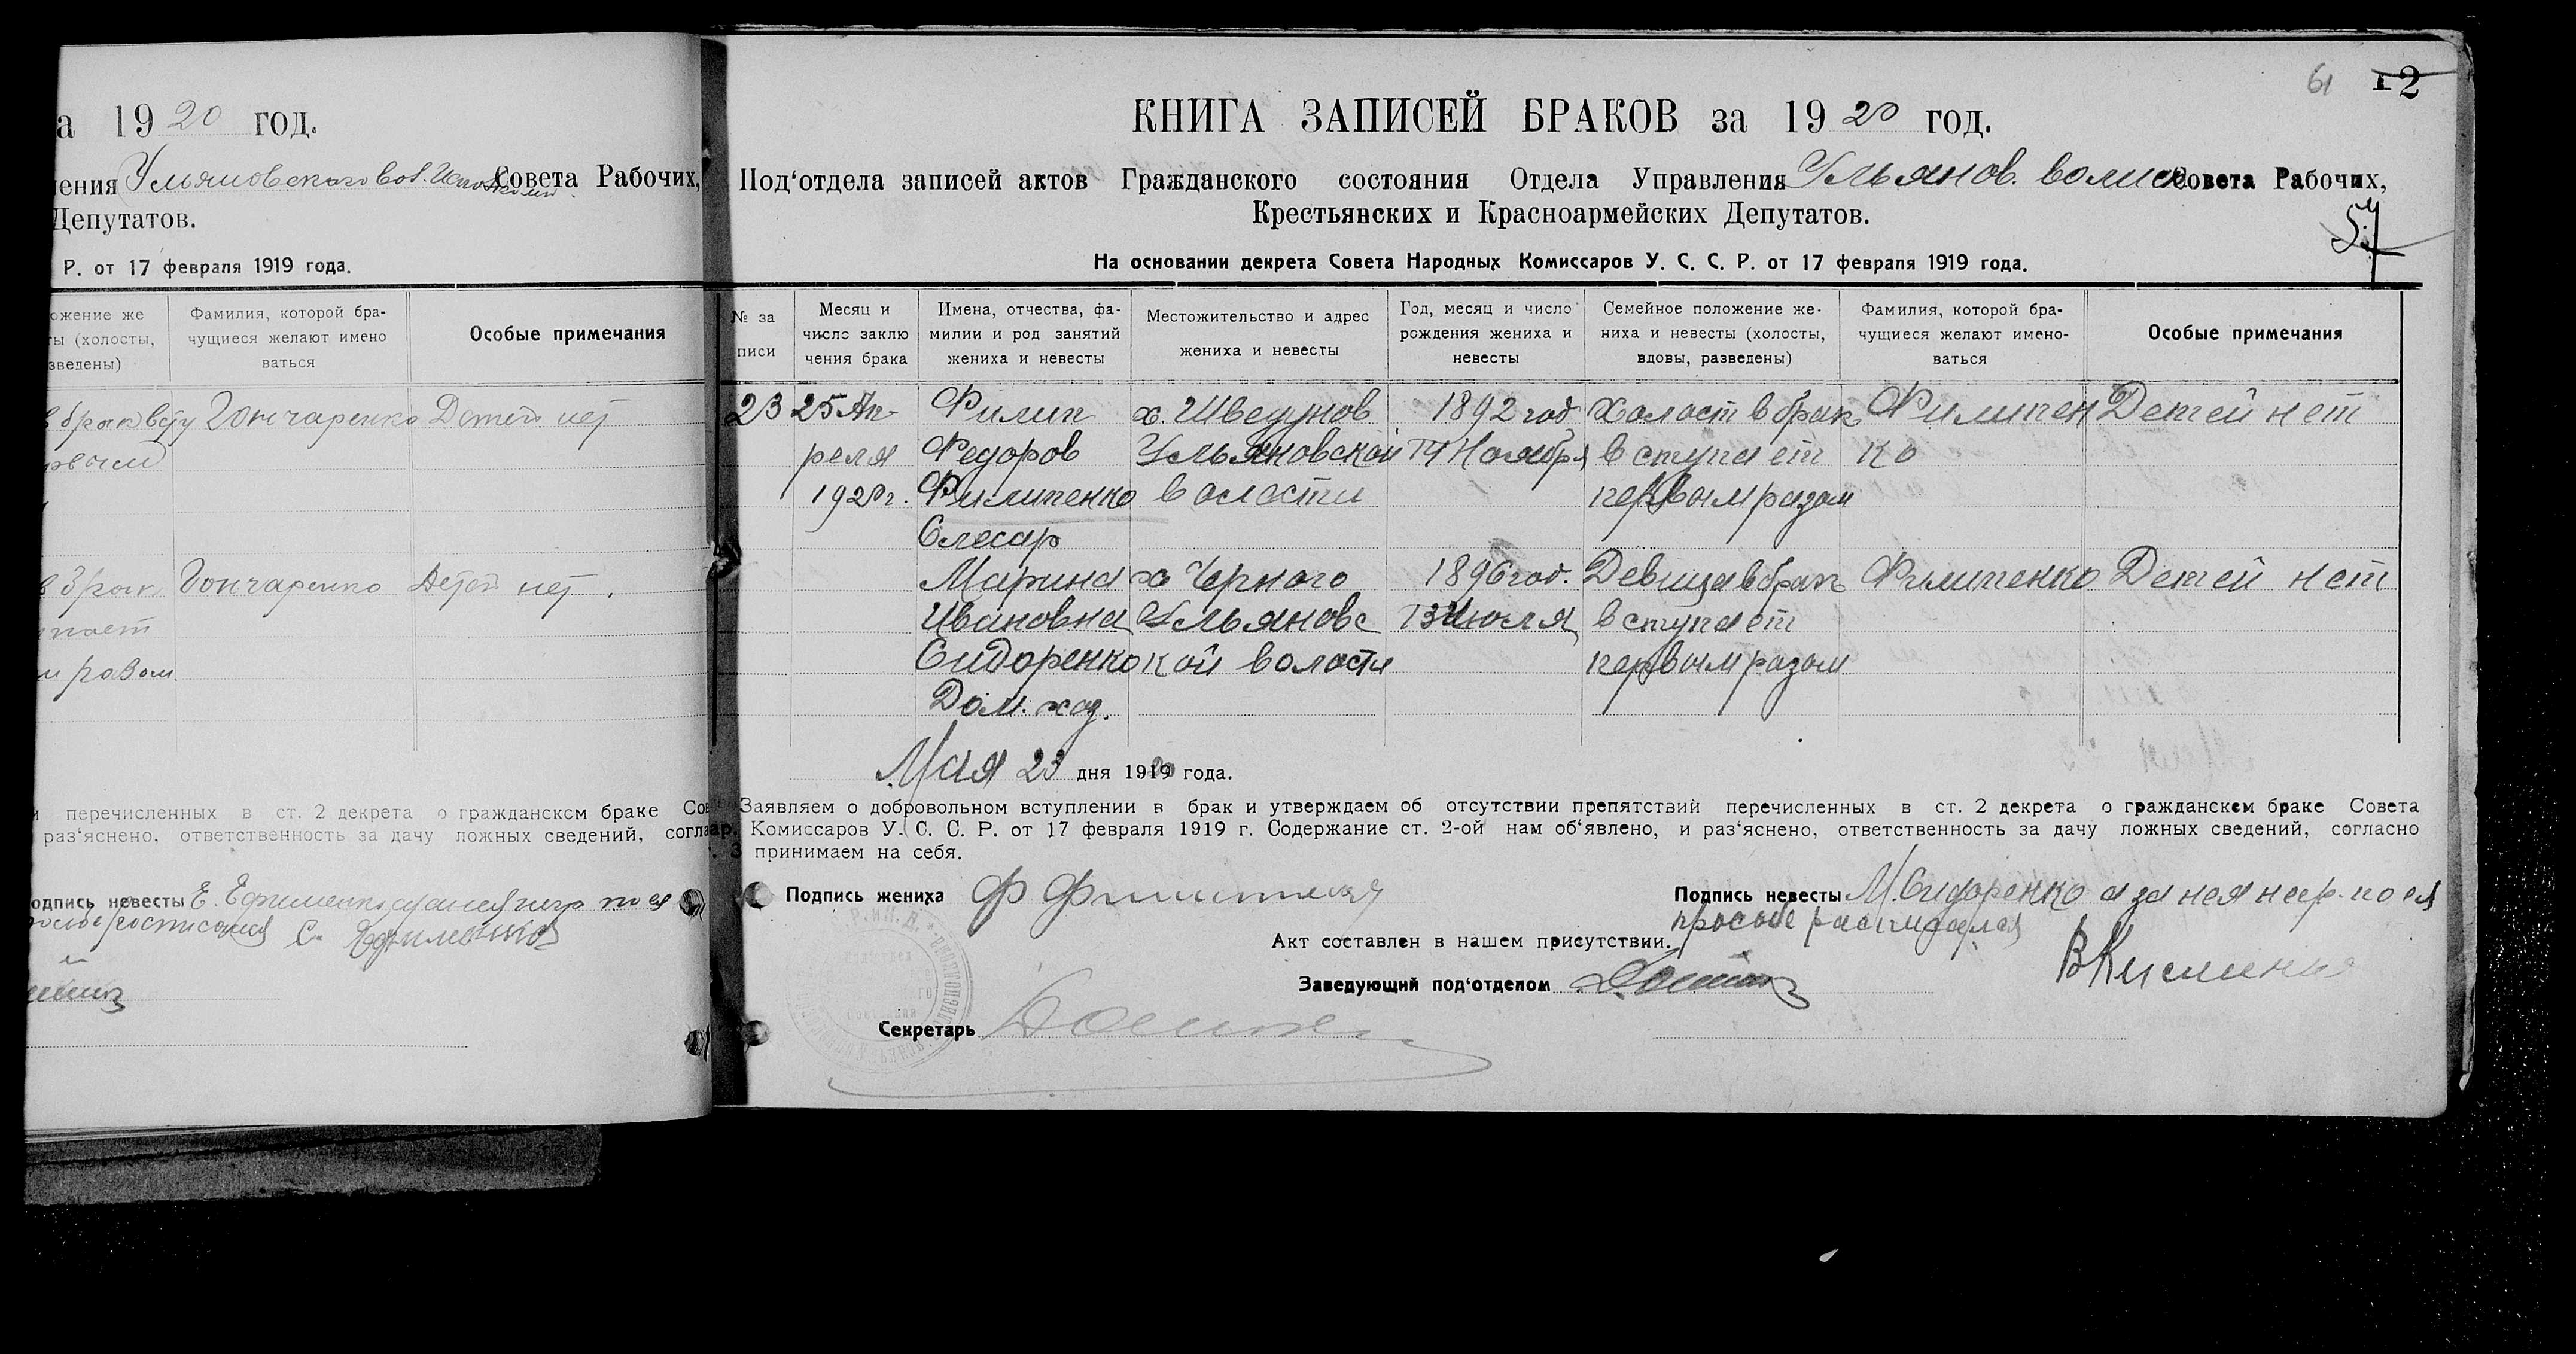 а 1920 год.
ления Ульяновского вол. Совета Рабочих,
Депутатов.
Р. от 17 февраля 1919 года.
ожение же
ты (холосты,
зведены)
Фамилия, которой бра-
чущиеся желают имено
ваться
Особые примечания
в брак всту Гончаренко Детей нет
рвым
в брак Гончаренко Детей нет.
пает
м разом
и перечисленных в ст. 2 декрета о гражданском браке Сов
раз‘яснено. ответственность за дачу ложных сведений, согла
одпись невесты Е. Ефименко а за нея негр по ея
просьбе росписался С. Ефименко
61 12
КНИГА ЗАПИСЕЙ БРАКОВ за 1920 год.
Под‘отдела записей актов Гражданского состояния Отдела Управления Ульянов. волис Совета Рабочих,
Крестьянских и Красноармейских Депутатов.
57
На основании декрета Совета Народных Комиссаров У. С. С. Р. от 17 февраля 1919 года.
№ за
писи
Месяц и
число заклю
чения брака
Имена, отчества, фа-
милии и род занятий
жениха и невесты
Местожительство и адрес
жениха и невесты
Год, месяц и число
рождения жениха и
невесты
Семейное положение же-
ниха и невесты (холосты,
вдовы, разведены)
Фамилия, которой бра-
чущиеся желают имено-
ваться
Особые примечания
23 25 Ап- Филип х. Шведунов 1892 год Холост в брак Филипен Детей нет
реля Федоров Ульяновской 14 Ноября вступает ко
1920 г. Филипенко волости первым разом
Слесар
Марина х Черного 1896 год. Девица в брак Филипенко Детей нет
Ивановна Ульяновс 13 Июля вступает
Сидоренко кой волости первым разом
Дом. хаз.
Мая 23 дня 1920 года.
Заявляем о добровольном вступлении в брак и утверждаем об отсутствии препятствий перечисленных в ст. 2 декрета о гражданском браке Совета
ар. Комиссаров У. С. С. Р. от 17 февраля 1919 г. Содержание ст. 2-ой нам об‘явлено, и раз‘яснено, ответственность за дачу ложных сведений, согласно
. 3 принимаем на себя.
Подпись жениха Ф Филипенко
Подпись невесты М. Сидоренко а за нея негр. по ея
просьбе расписался
Акт составлен в нашем присутствии.
Заведующий под‘отделом
Секретарь